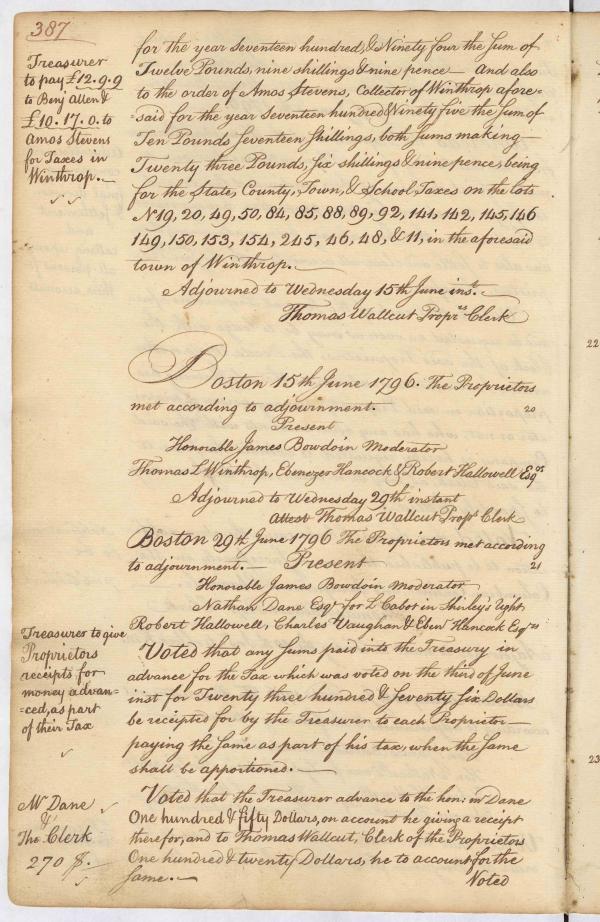 387
Treasurer
to pay £12.9.9
to Benj Allen &
£10.17.0. to
Amos Stevens
for Taxes in
Winthrop.
for the year Seventeen hundred, & Ninety four the Sum of
Twelve Pounds, nine shillings & nine pence — And also
to the order of Amos Stevens, Collector of Winthrop afore=
=said for the year Seventeen hundred & Ninety five the Sum of
Ten Pounds Seventeen Shillings, both Sums making
Twenty three Pounds, Six shillings & nine pence, being
for the State, County, Town, & School Taxes on the lots
No 19, 20, 49, 50, 84, 85, 88, 89, 92, 141, 142, 145, 146
149, 150, 153, 154, 245, 46, 48, & 11, in the aforesaid
town of Winthrop.
Adjourned to Wednesday 15th June inst.
Thomas Wallcut Proprs Clerk
Boston 15th June 1796. The Proprietors
met according to adjournment. 20
Present
Honorable James Bowdoin Moderator
Thomas L Winthrop, Ebenezer Hancock & Robert Hallowell Esqrs
Adjourned to Wednesday 29th instant
Attest Thomas Wallcut Proprs Clerk
Boston 29th June 1796 The Proprietors met according
to adjournment. — Present 21
Honorable James Bowdoin Moderator
Nathan Dane Esqr for L Cabot in Shirley's right
Robert Hallowell, Charles Vaughan & Eben Hancock Esqrs
Treasurer to give
Proprietors
receipts for
money advan=
=ced, as part
of their Tax
Voted that any Sums paid into the Treasury in
advance for the Tax which was voted on the third of June
inst for Twenty three hundred & Seventy Six Dollars
be receipted for by the Treasurer to each Proprietor
paying the Same as part of his tax, when the Same
shall be apportioned.
Mr Dane
&
The Clerk
270 $.
Voted that the Treasurer advance to the hon: mr Dane
One hundred & fifty Dollars, on account he giving a receipt
therefor, and to Thomas Wallcut, Clerk of the Proprietors
One hundred & twenty Dollars, he to account for the
Same.
Voted
22
23